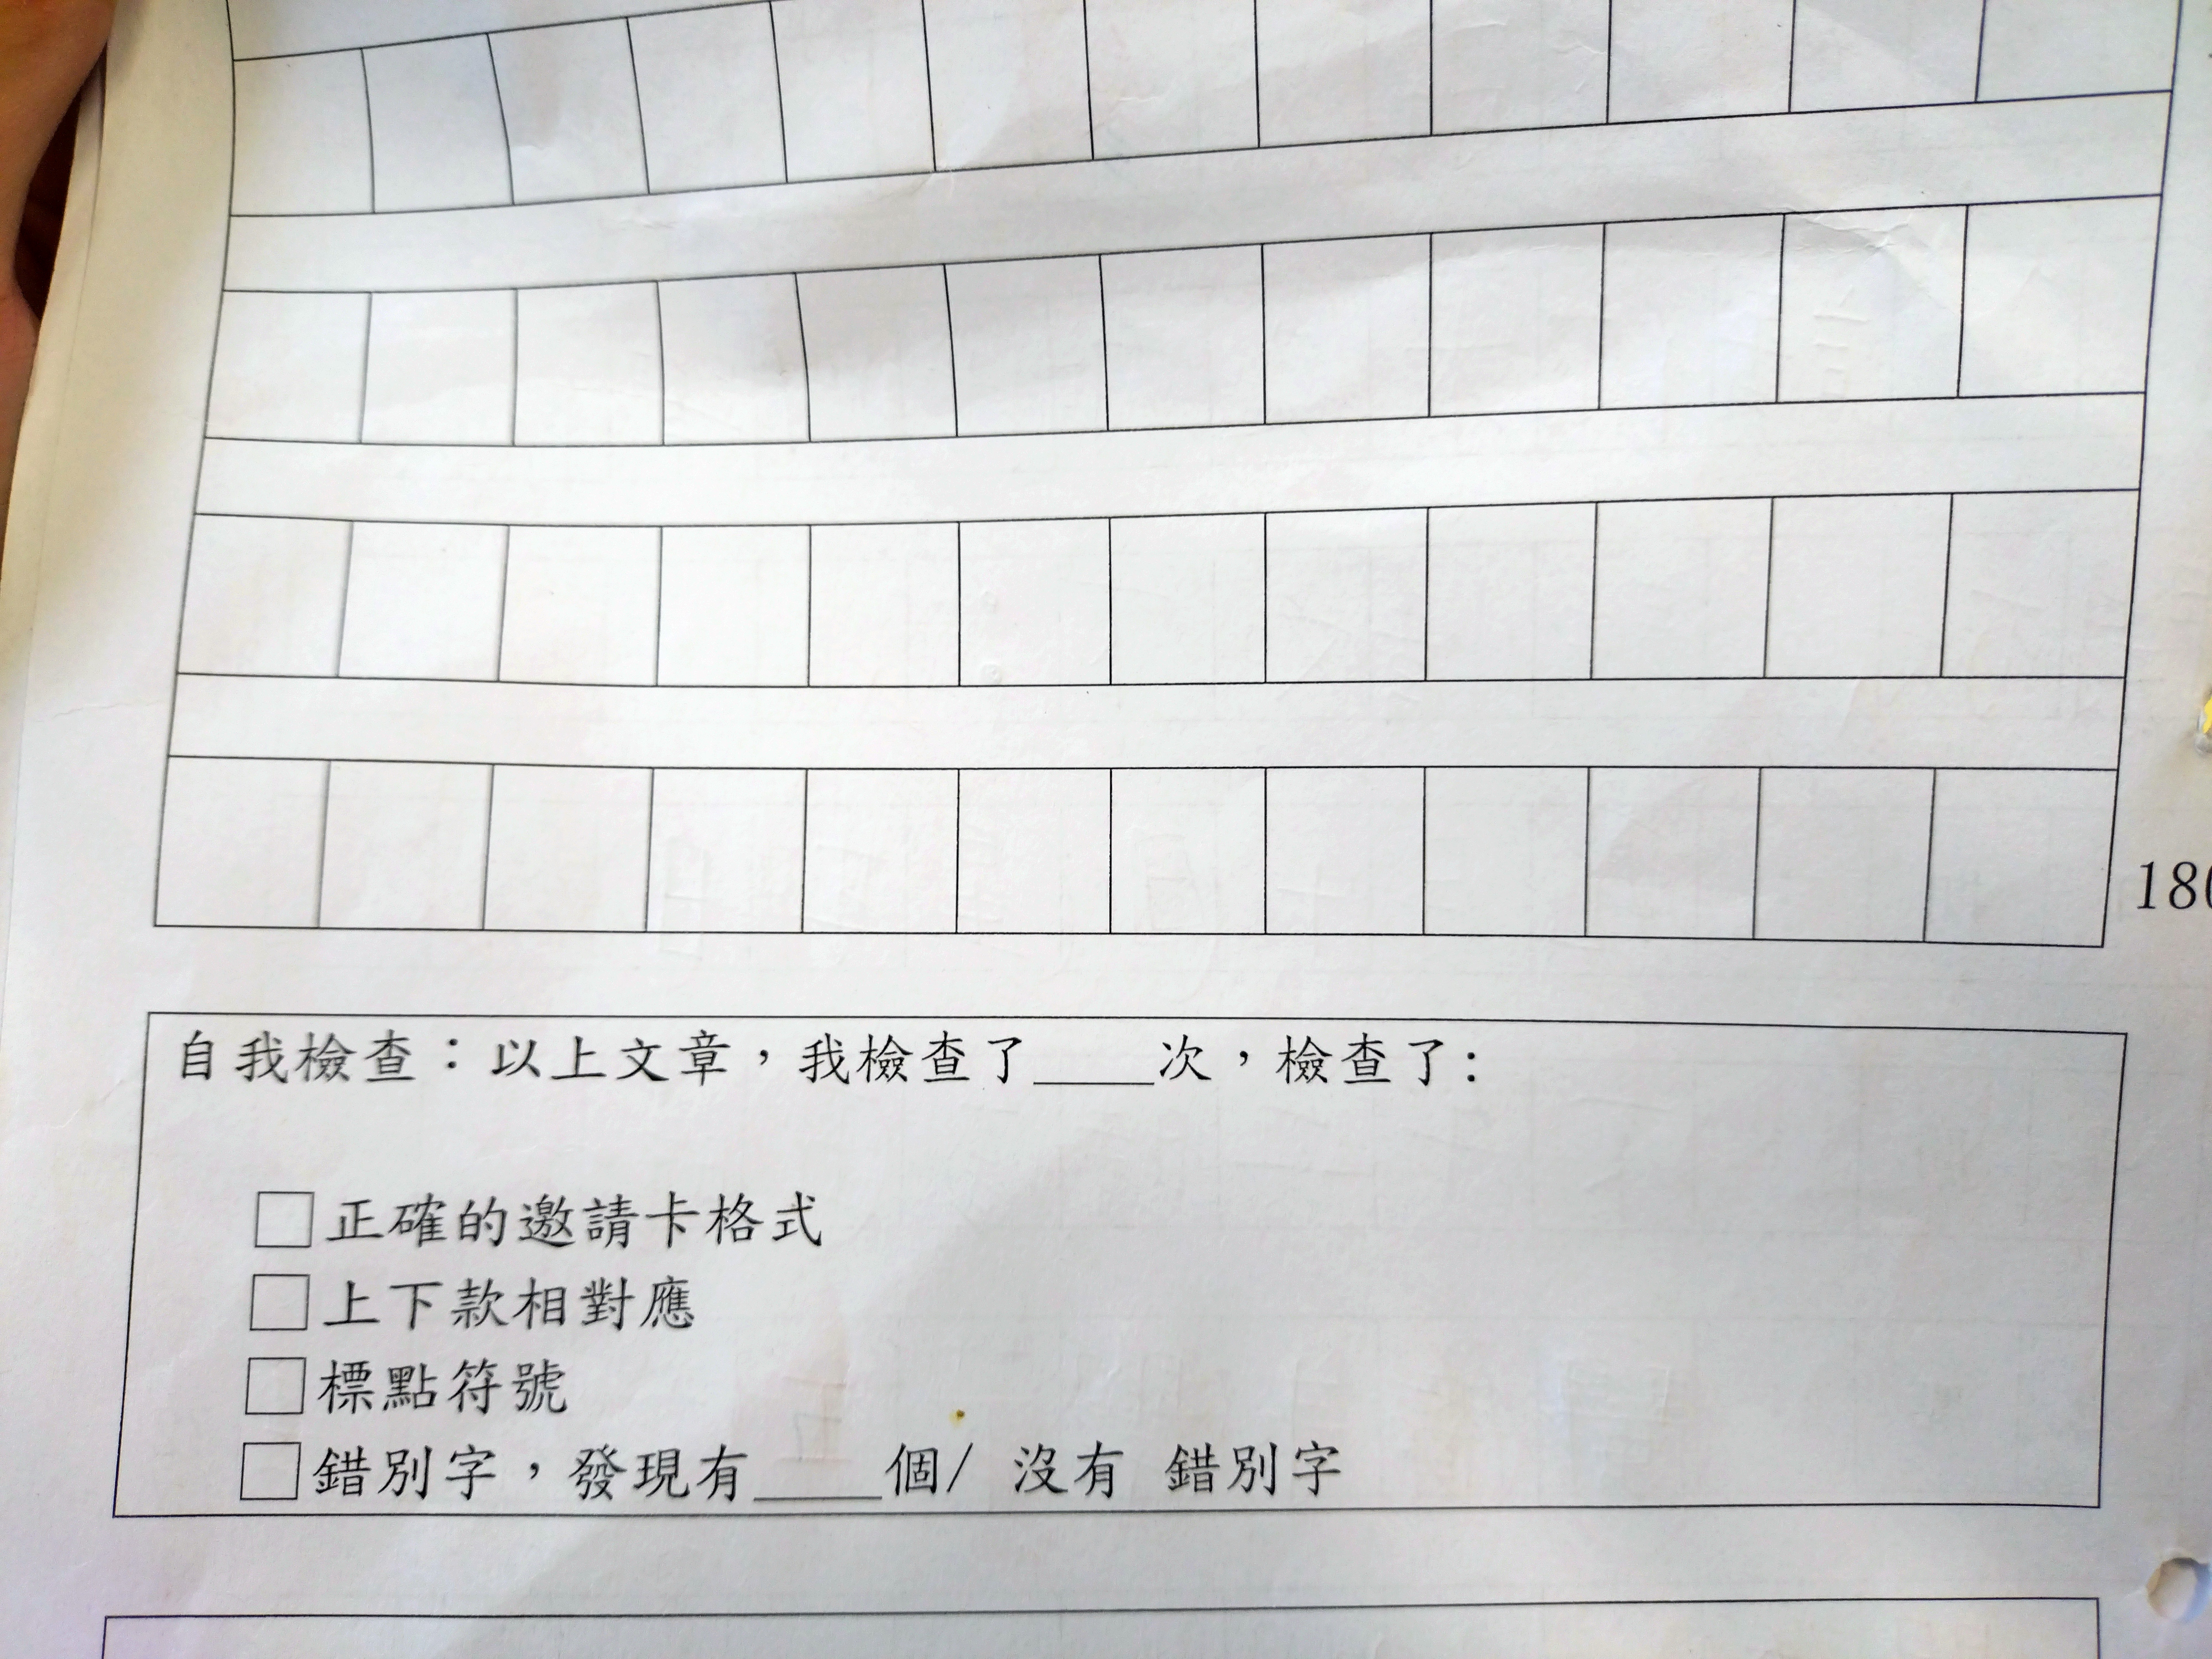 180
自我檢查：以上文章，我檢查了____次，檢查了:
□正確的邀請卡格式
□上下款相對應
□標點符號
□錯別字，發現有____個/ 沒有 錯別字